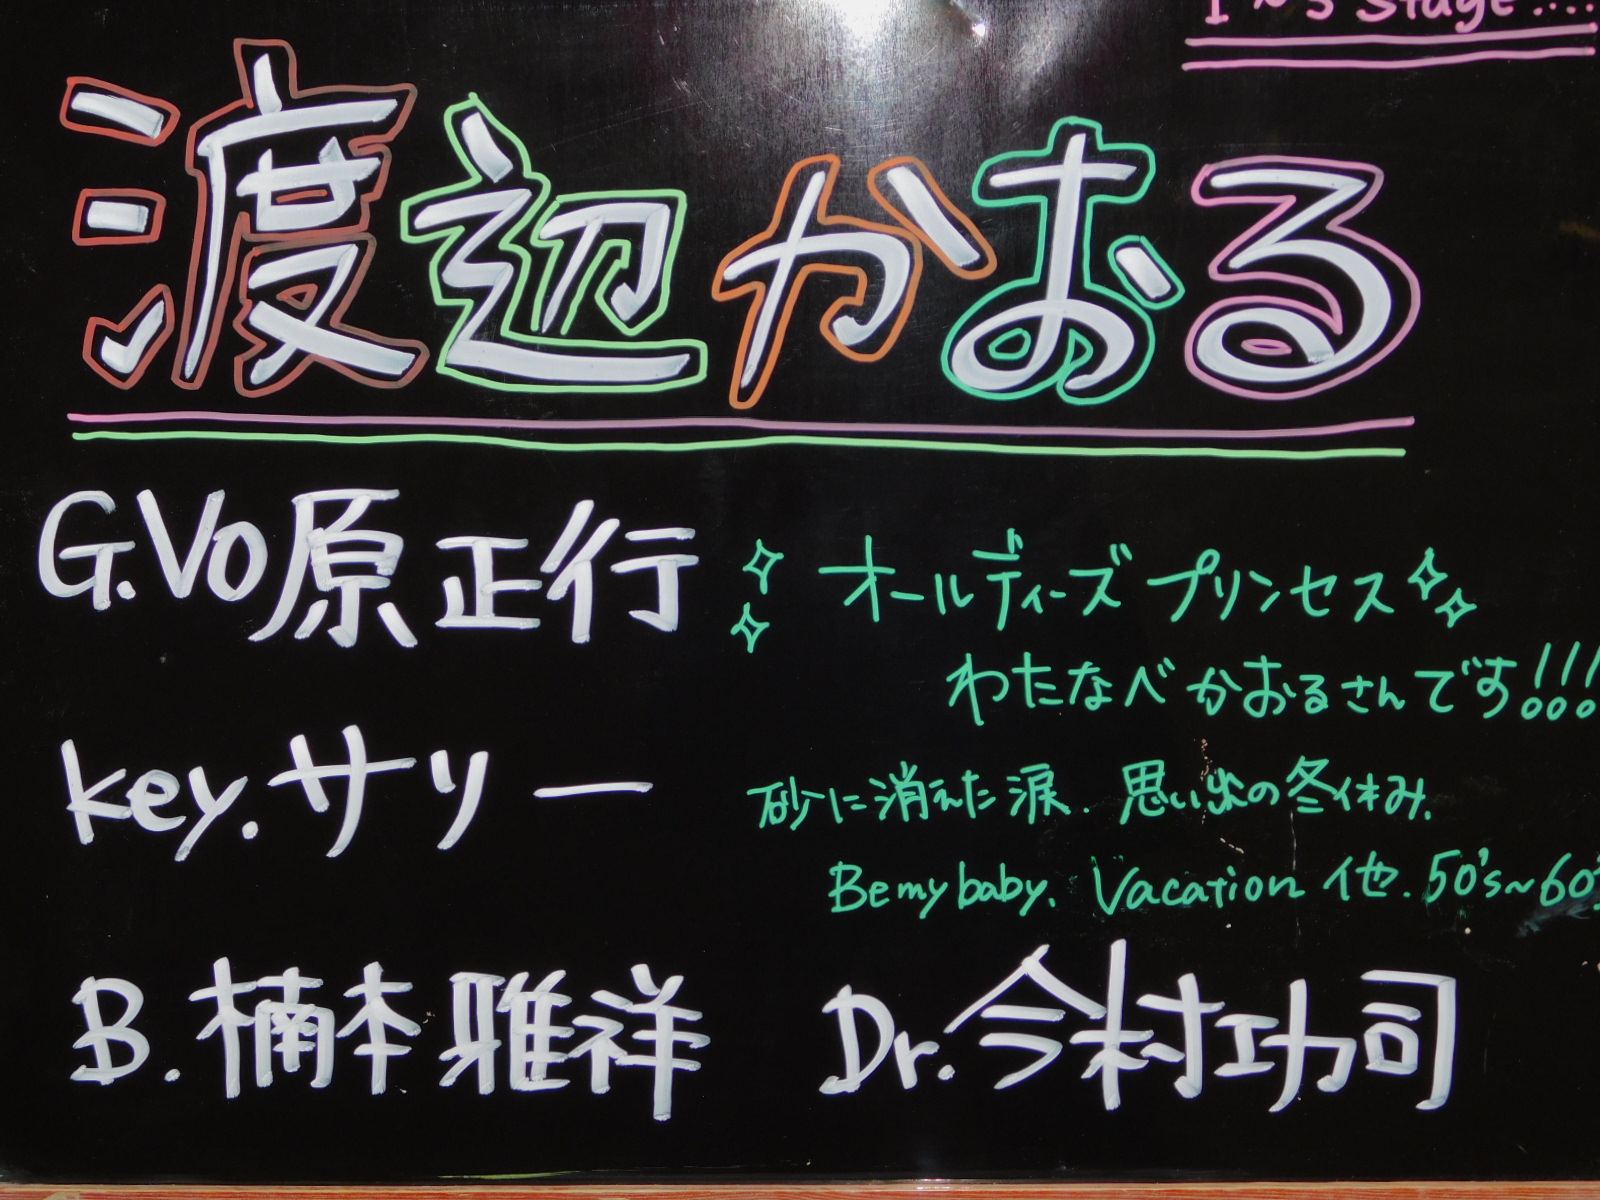 1~3 Stage....
渡辺かおる
G.Vo原 正行
オールディーズ プリンセス
わたなべかおるさんです!!!
key.サリー
砂に消えた涙. 思い出の冬休み.
Be my baby. Vacation 他. 50's~60's
B.楠本 雅祥
Dr.今村功司